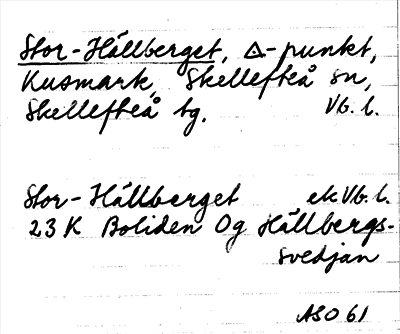 Stor-Hällberget, △-punkt,
Kusmark, Skellefteå sn,
Skellefteå tg. Vb. l.
Stor-Hällberget ek Vb. l.
23K Boliden 0g Hällbergs-
svedjan
ASO 61